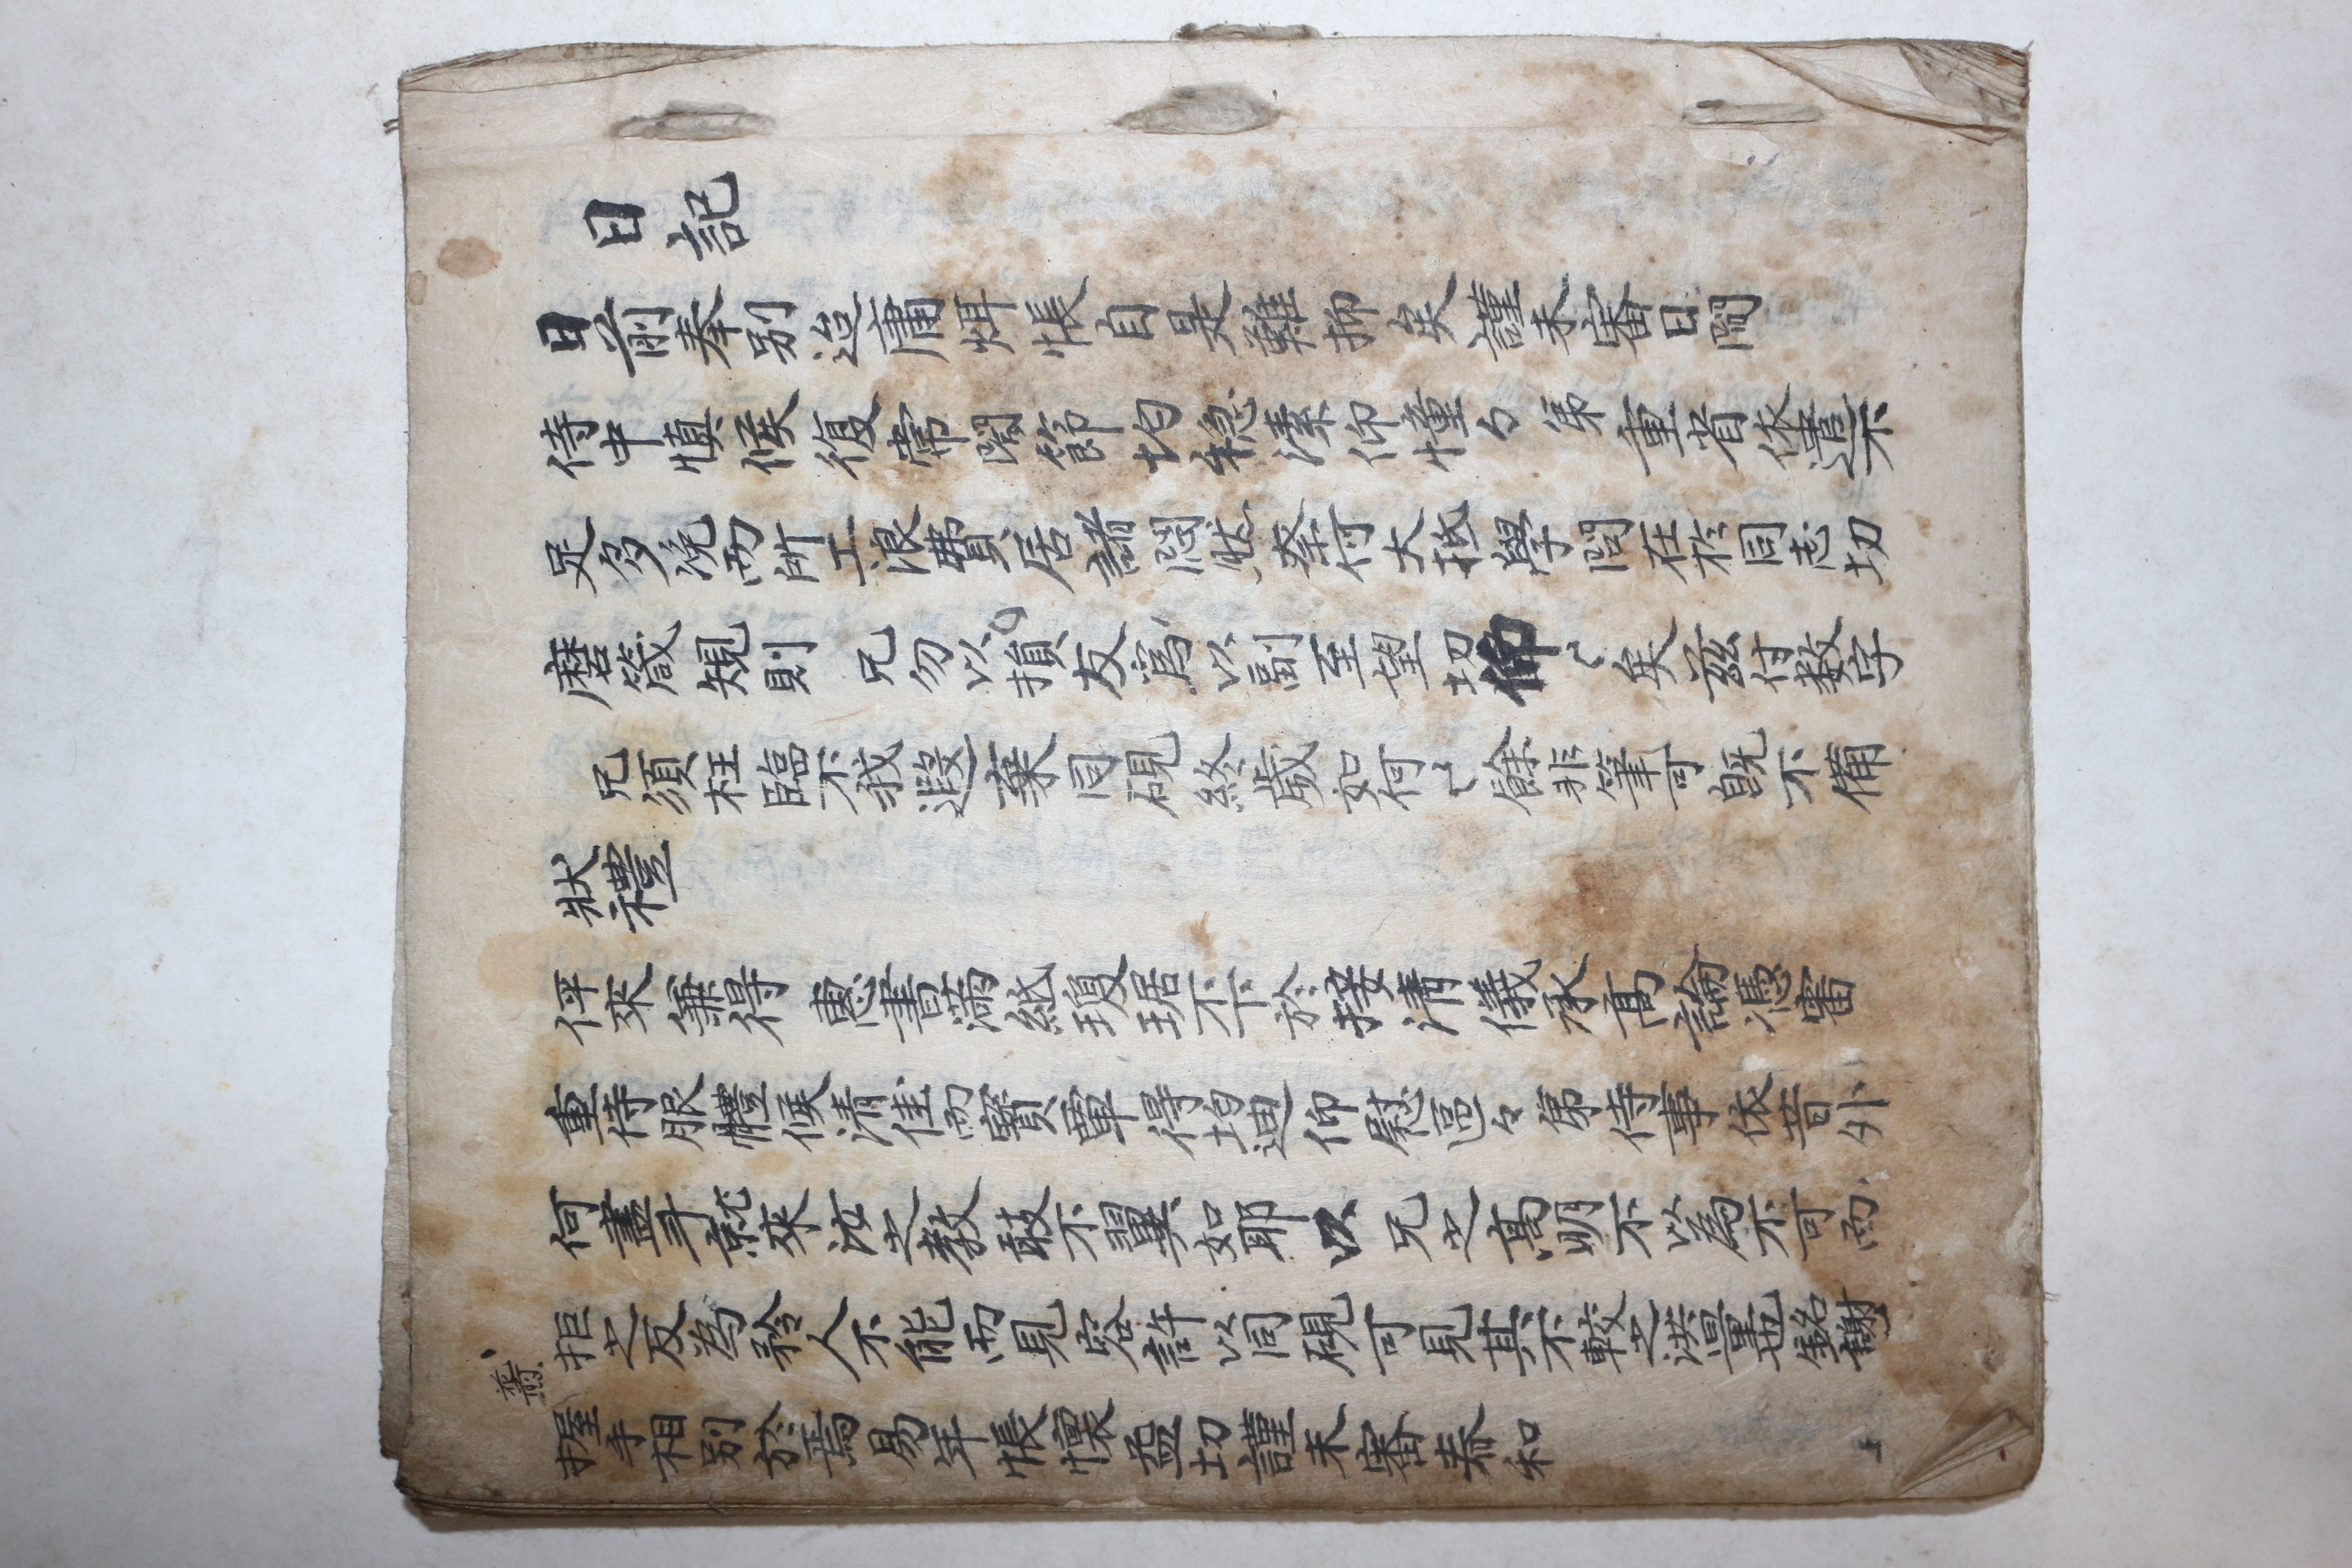 日記
日前奉別迨庸耿悵自是難抑矣謹未審日間
侍中愼候復常閤節均穩溱仰蕫々弟重省依遣不
足多浼而所工浪費居諸悶愁奈何大抵學問在於同志切
磨箴規則 兄勿以損友寫以副至望切仰〻矣玆付数字
兄須枉臨不我遐棄同硯終歲如何〻餘非筆可旣不備
狀禮
伻來兼得 惠書滿紙瓊琚不下於接淸儀承高論憑審
重侍服體候淸佳而寶覃得均迪仰慰區々弟侍事依昔外
何盡耳就來汝之教敢不翼如耶以 兄之高明不以為不可而
拒之反為矜人不能而見容許以同硯可見其不較之洪量也銘謝
握手相別於焉易年悵懷益切謹未審泰和